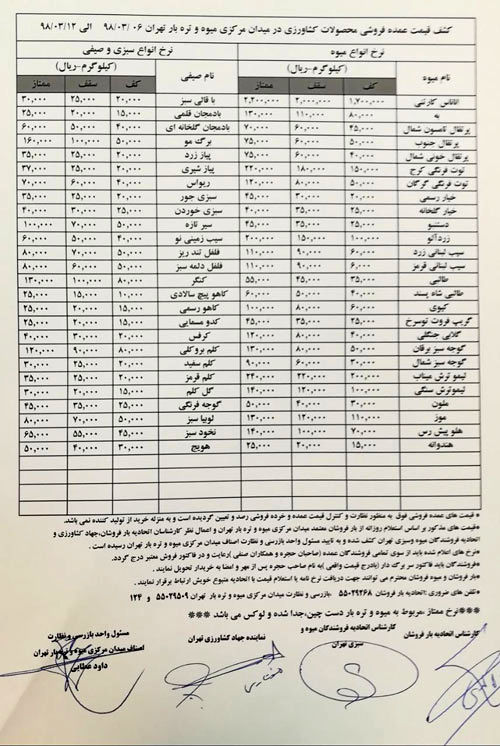 کشف قیمت عمده فروشی محصولات کشاورزی در میدان مرکزی میوه و تره بار تهران ۹۸/۰۳/۰۶ الی ۹۸/۰۳/۱۲
نرخ انواع میوه نرخ انواع سبزی و صیفی
نام میوه (کیلوگرم-ریال) نام صیفی (کیلوگرم-ریال)
کف سقف ممتاز کف سقف ممتاز
آناناس کارتنی ۱,۷۰۰,۰۰۰ ۲,۰۰۰,۰۰۰ ۲,۲۰۰,۰۰۰ باقالی سبز ۲۰,۰۰۰ ۲۵,۰۰۰ ۳۰,۰۰۰
به ۸۰,۰۰۰ ۱۱۰,۰۰۰ ۱۳۰,۰۰۰ بادمجان قلمی ۱۵,۰۰۰ ۲۰,۰۰۰ ۲۵,۰۰۰
پرتقال تامسون شمال ۴۵,۰۰۰ ۶۰,۰۰۰ ۷۰,۰۰۰ بادمجان گلخانه ای ۴۰,۰۰۰ ۵۰,۰۰۰ ۶۰,۰۰۰
پرتقال جنوب ۵۰,۰۰۰ ۶۰,۰۰۰ ۷۵,۰۰۰ برگ مو ۵۰,۰۰۰ ۱۰۰,۰۰۰ ۱۶۰,۰۰۰
پرتقال خونی شمال ۵۰,۰۰۰ ۶۰,۰۰۰ ۷۵,۰۰۰ پیاز زرد ۲۰,۰۰۰ ۲۵,۰۰۰ ۳۵,۰۰۰
توت فرنگی کرج ۱۵۰,۰۰۰ ۱۸۰,۰۰۰ ۲۲۰,۰۰۰ پیاز شیری ۲۰,۰۰۰ ۲۵,۰۰۰ ۳۷,۰۰۰
توت فرنگی گرگان ۵۰,۰۰۰ ۸۰,۰۰۰ ۱۲۰,۰۰۰ ریواس ۴۰,۰۰۰ ۶۰,۰۰۰ ۷۰,۰۰۰
خیار رسمی ۲۰,۰۰۰ ۳۰,۰۰۰ ۴۵,۰۰۰ سبزی جور ۲۰,۰۰۰ ۲۵,۰۰۰ ۳۵,۰۰۰
خیار گلخانه ۲۵,۰۰۰ ۳۵,۰۰۰ ۴۰,۰۰۰ سبزی خوردن ۲۵,۰۰۰ ۳۰,۰۰۰ ۴۰,۰۰۰
دستنبو ۲۵,۰۰۰ ۳۵,۰۰۰ ۴۵,۰۰۰ سیر تازه ۵۰,۰۰۰ ۷۰,۰۰۰ ۱۰۰,۰۰۰
زردآلو ۱۰۰,۰۰۰ ۱۵۰,۰۰۰ ۲۰۰,۰۰۰ سیب زمینی نو ۴۰,۰۰۰ ۵۰,۰۰۰ ۶۰,۰۰۰
سیب لبنانی زرد ۶۰,۰۰۰ ۹۰,۰۰۰ ۱۱۰,۰۰۰ فلفل تند ریز ۵۰,۰۰۰ ۷۰,۰۰۰ ۸۰,۰۰۰
سیب لبنانی قرمز ۶,۰۰۰ ۹۰,۰۰۰ ۱۱۰,۰۰۰ فلفل دلمه سبز ۵۰,۰۰۰ ۶۰,۰۰۰ ۸۰,۰۰۰
طالبی ۳۵,۰۰۰ ۴۵,۰۰۰ ۵۵,۰۰۰ کنگر ۸۰,۰۰۰ ۱۰۰,۰۰۰ ۱۳۰,۰۰۰
طالبی شاه پسند ۴۰,۰۰۰ ۵۰,۰۰۰ ۶۰,۰۰۰ کاهو پیچ سالادی ۱۰,۰۰۰ ۱۵,۰۰۰ ۲۵,۰۰۰
کیوی ۶۰,۰۰۰ ۸۰,۰۰۰ ۱۰۰,۰۰۰ کاهو رسمی ۱۵,۰۰۰ ۲۰,۰۰۰ ۲۵,۰۰۰
گریپ فروت توسرخ ۲۵,۰۰۰ ۳۵,۰۰۰ ۴۵,۰۰۰ کدو مسمایی ۱۵,۰۰۰ ۲۰,۰۰۰ ۲۵,۰۰۰
گلابی جنگلی ۴۰,۰۰۰ ۸۰,۰۰۰ ۱۲۰,۰۰۰ کرفس ۲۰,۰۰۰ ۳۰,۰۰۰ ۴۰,۰۰۰
گوجه سبز برقان ۵۰,۰۰۰ ۸۰,۰۰۰ ۱۳۰,۰۰۰ کلم بروکلی ۸۰,۰۰۰ ۹۰,۰۰۰ ۱۲۰,۰۰۰
گوجه سبز شمال ۳۰,۰۰۰ ۶۰,۰۰۰ ۹۰,۰۰۰ کلم سفید ۲۰,۰۰۰ ۲۵,۰۰۰ ۳۰,۰۰۰
لیمو ترش میناب ۲۰۰,۰۰۰ ۲۲۰,۰۰۰ ۲۴۰,۰۰۰ کلم قرمز ۲۰,۰۰۰ ۲۵,۰۰۰ ۳۵,۰۰۰
لیموترش سنگی ۱۰۰,۰۰۰ ۱۲۰,۰۰۰ ۱۴۰,۰۰۰ گل کلم ۱۵,۰۰۰ ۲۰,۰۰۰ ۳۰,۰۰۰
ملون ۳۰,۰۰۰ ۴۰,۰۰۰ ۵۰,۰۰۰ گوجه فرنگی ۲۵,۰۰۰ ۳۵,۰۰۰ ۴۵,۰۰۰
موز ۱۱۰,۰۰۰ ۱۲۰,۰۰۰ ۱۳۰,۰۰۰ لوبیا سبز ۵۰,۰۰۰ ۷۰,۰۰۰ ۸۰,۰۰۰
هلو پیش رس ۷۰,۰۰۰ ۱۰۰,۰۰۰ ۱۴۰,۰۰۰ نخود سبز ۴۵,۰۰۰ ۵۵,۰۰۰ ۶۵,۰۰۰
هندوانه ۱۵,۰۰۰ ۲۰,۰۰۰ ۲۵,۰۰۰ هویج ۳۰,۰۰۰ ۴۰,۰۰۰ ۵۰,۰۰۰
*قیمت های عمده فروشی فوق به منظور نظارت و کنترل قیمت عمده و خرده فروشی رصد و تعیین گردیده است و به منزله خرید از تولید کننده نمی باشد.
*قیمت های مذکور بر اساس استعلام روزانه از بار فروشان معتمد میدان مرکزی میوه و تره بار تهران و اعمال نظر کارشناسان اتحادیه بار فروشان،جهاد کشاورزی و
اتحادیه فروشندگان میوه وسبزی تهران کشف شده و به تایید مسئول واحد بازرسی و نظارت اصناف میدان مرکزی میوه و تره بار تهران رسیده است.
*نرخ های اعلام شده باید از سوی تمامی فروشندگان عمده (صاحبان حجره و همکاران صنفی )رعایت و در فاکتور فروش معتبر درج گردد.
*فروشندگان باید فاکتور سر برگ دار (بادرج قیمت واقعی )به نام صاحب حجره پس از مهر و امضا به خریدار تحویل نمایند.
*بار فروشان و میوه فروشان محترم می توانند جهت دریافت نرخ نامه یا استعلام قیمت با اتحادیه متبوع خویش ارتباط برقرار نمایند.
*تلفن های ضروری: اتحادیه بار فروشان ۵۵۰۲۹۲۶۸ ،بازرسی و نظارت میدان مرکزی میوه و تره بار تهران ۵۵۰۲۹۵۰۹ و ۱۲۴
***نرخ ممتاز ،مربوط به میوه و تره بار دست چین،جدا شده و لوکس می باشد***
کارشناس اتحادیه بار فروشان
کارشناس اتحادیه فروشندگان میوه و
سبزی تهران
نماینده جهاد کشاورزی تهران
مسئول واحد بازرسی و نظارت
اصناف میدان مرکزی میوه و تره بار تهران
داود عطایی